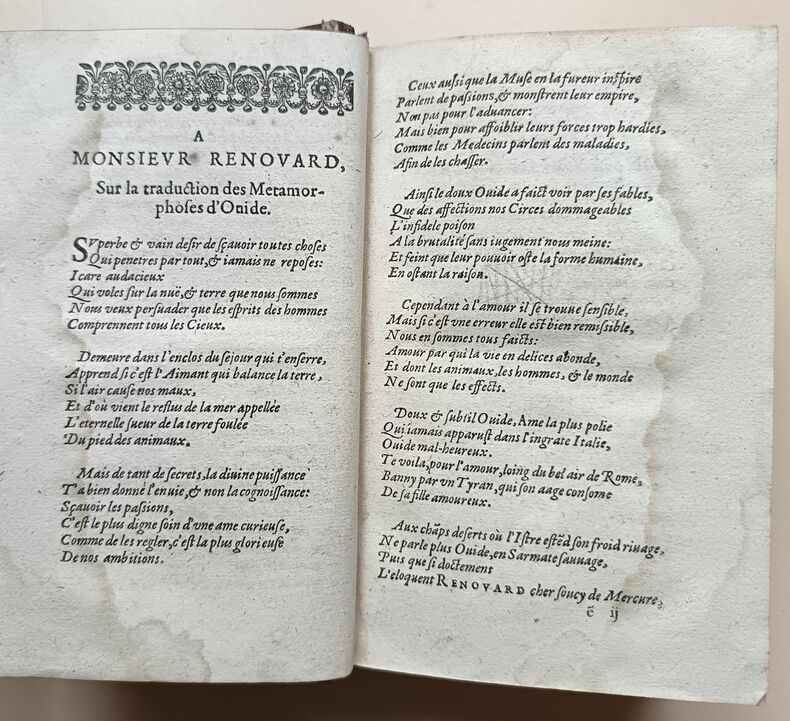 A
MONSIEVR RENOVARD,
Sur la traduction des Metamor-
phoses d'Ouide.
SVperbe & vain desir de sçauoir toutes choses
Qui penetres par tout, & iamais ne reposes:
Icare audacieux
Qui voles sur la nuë, & terre que nous sommes
Nous veux persuader que les esprits des hommes
Comprennent tous les Cieux.
Demeure dans l'enclos du sejour qui t'enserre,
Apprend si c'est l'Aimant qui balance la terre,
Si l'air cause nos maux,
Et d'où vient le reflus de la mer appellée
L'eternelle sueur de la terre foulée
Du pied des animaux.
Mais de tant de secrets, la diuine puissance
T'a bien donné l'enuie, & non la cognoissance:
Sçauoir les passions,
C'est le plus digne soin d'vne ame curieuse,
Comme de les regler, c'est la plus glorieuse
De nos ambitions.
Ceux aussi que la Muse en la fureur inspire
Parlent de passions, & monstrent leur empire,
Non pas pour l'aduancer:
Mais bien pour affoiblir leurs forces trop hardies,
Comme les Medecins parlent des maladies,
Afin de les chasser.
Ainsi le doux Ouide a faict voir par ses fables,
Que des affections nos Circes dommageables
L'infidele poison
A la brutalité sans iugement nous meine:
Et feint que leur pouuoir oste la forme humaine,
En ostant la raison.
Cependant à l'amour il se trouue sensible,
Mais si c'est vne erreur elle est bien remissible,
Nous en sommes tous faicts:
Amour par qui la vie en delices abonde,
Et dont les animaux, les hommes, & le monde
Ne sont que les effects.
Doux & subtil Ouide, Ame la plus polie
Qui iamais apparust dans l'ingrate Italie,
Ouide mal-heureux.
Te voila, pour l'amour, loing du bel air de Rome,
Banny par vn Tyran, qui son aage consome
De sa fille amoureux.
Aux chãps deserts où l'Istre estẽd son froid riuage,
Ne parle plus Ouide, en Sarmate sauuage,
Puis que si doctement
L'eloquent RENOVARD cher soucy de Mercure,
ẽ ij